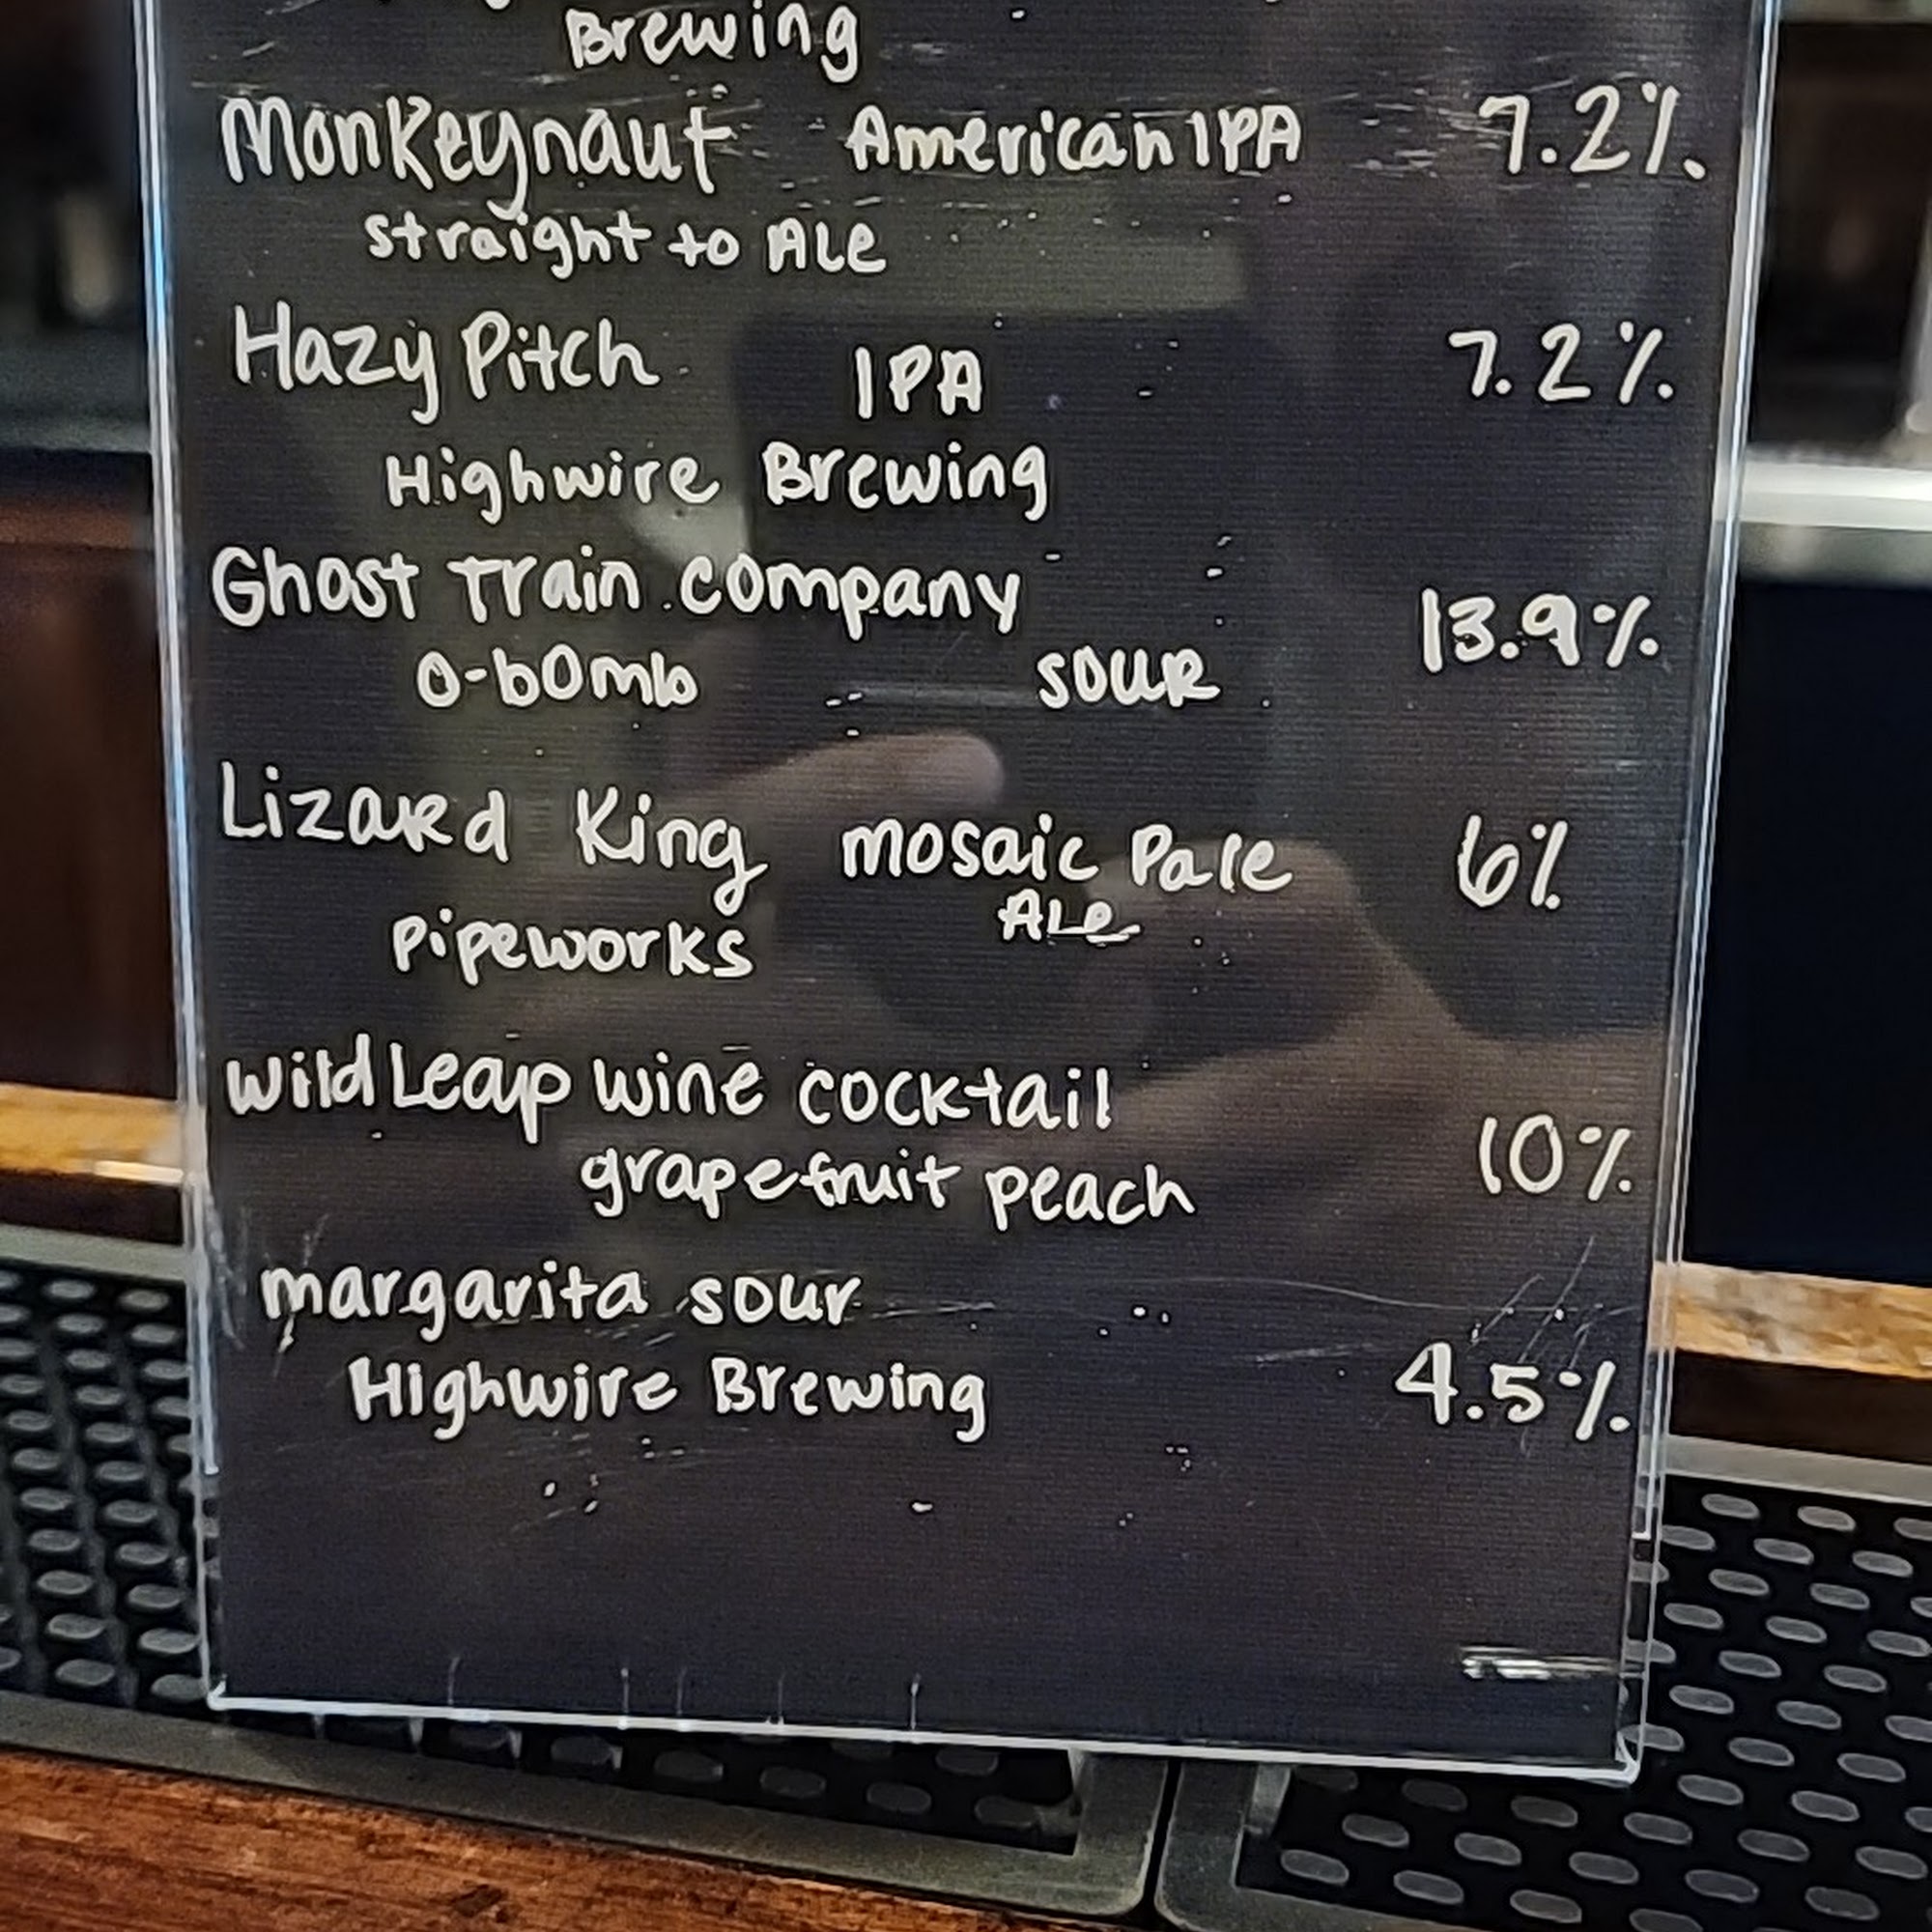 Brewing
Monkeynaut American IPA 7.2%
Straight to Ale
Hazy Pitch IPA 7.2%
Highwire Brewing
Ghost Train Company
O-bomb sour 13.9%
Lizard King mosaic Pale 6%
Ale
Pipeworks
Wild Leap wine cocktail
grapefruit peach 10%
margarita sour
Highwire Brewing 4.5%